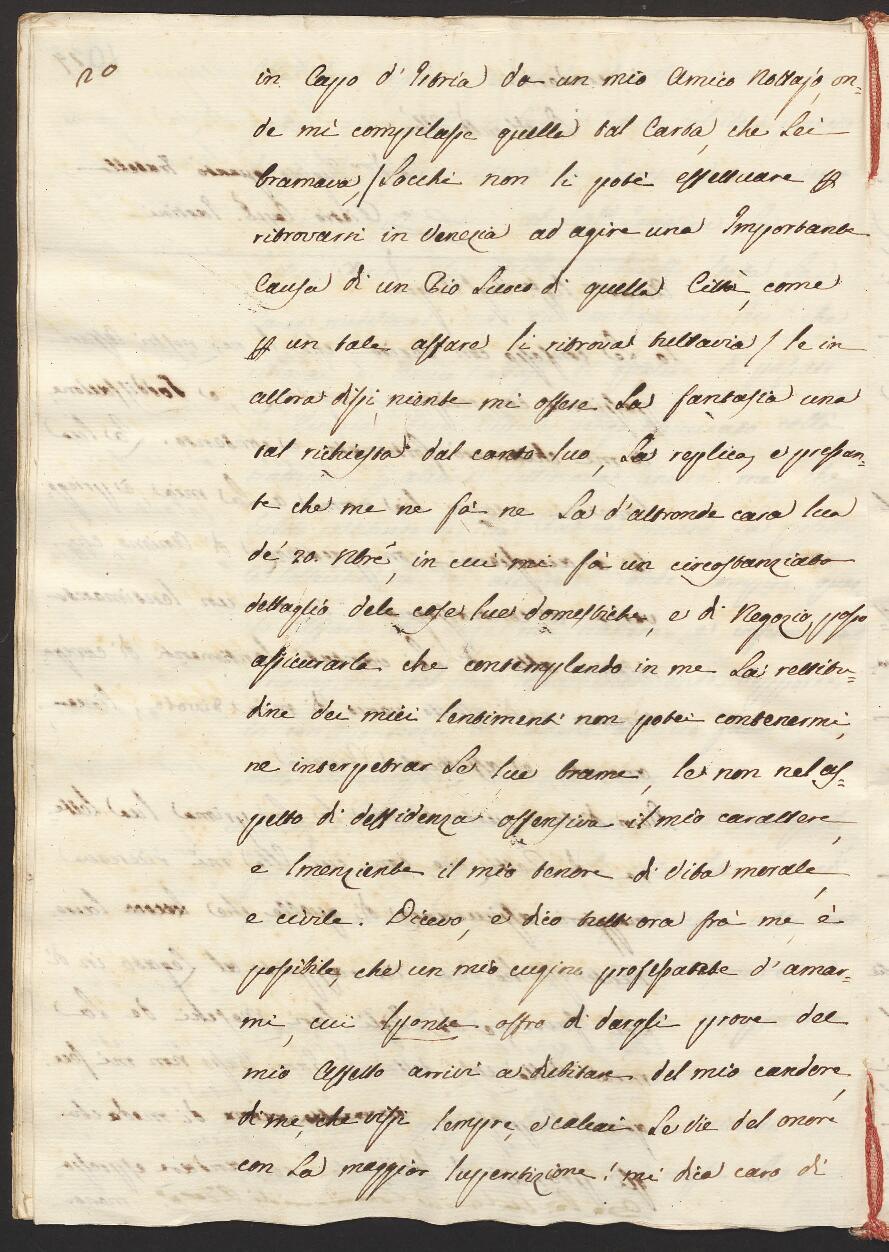 20
in Capo d' Istria da un mio Amico Nottajo, on-
de mi compilasse quella tal Carta, che Lei
bramava, /Locchè non si potè effettuare p
ritrovarsi in Venezia ad agire una Importante
Causa di un Pio Luoco di quella Città, come
p un tale affare si ritrova tuttavia / se in
allora dissi, niente mi offese La fantasia una
tal richiesta dal canto suo, La replica, e pressan-
te che me ne fà ne La d'altronde cara sua
de' 20. Nbrè, in cui mi fà un circostanziato
dettaglio dele cose sue domestiche, e di Negozio, posso
assicurarla che contemplando in me La rettitu-
dine dei miei sentimenti non potei contenermi,
ne interpetrar Le sue brame, se non nel as-
petto di deffidenza offensiva il mio carattere,
e smenziente il mio tenore di Vita morale,
e civile. Dicevo, e dico tutt ora frà me, è
possibile, che un mio cugino professante d' amar-
mi, cui sponte offro di dargli prove del
mio affetto arrivi a dubitare del mio candore,
di me, che vissi sempre, e calcai Le vie del onore
con La maggior superstizione! mi dica caro di